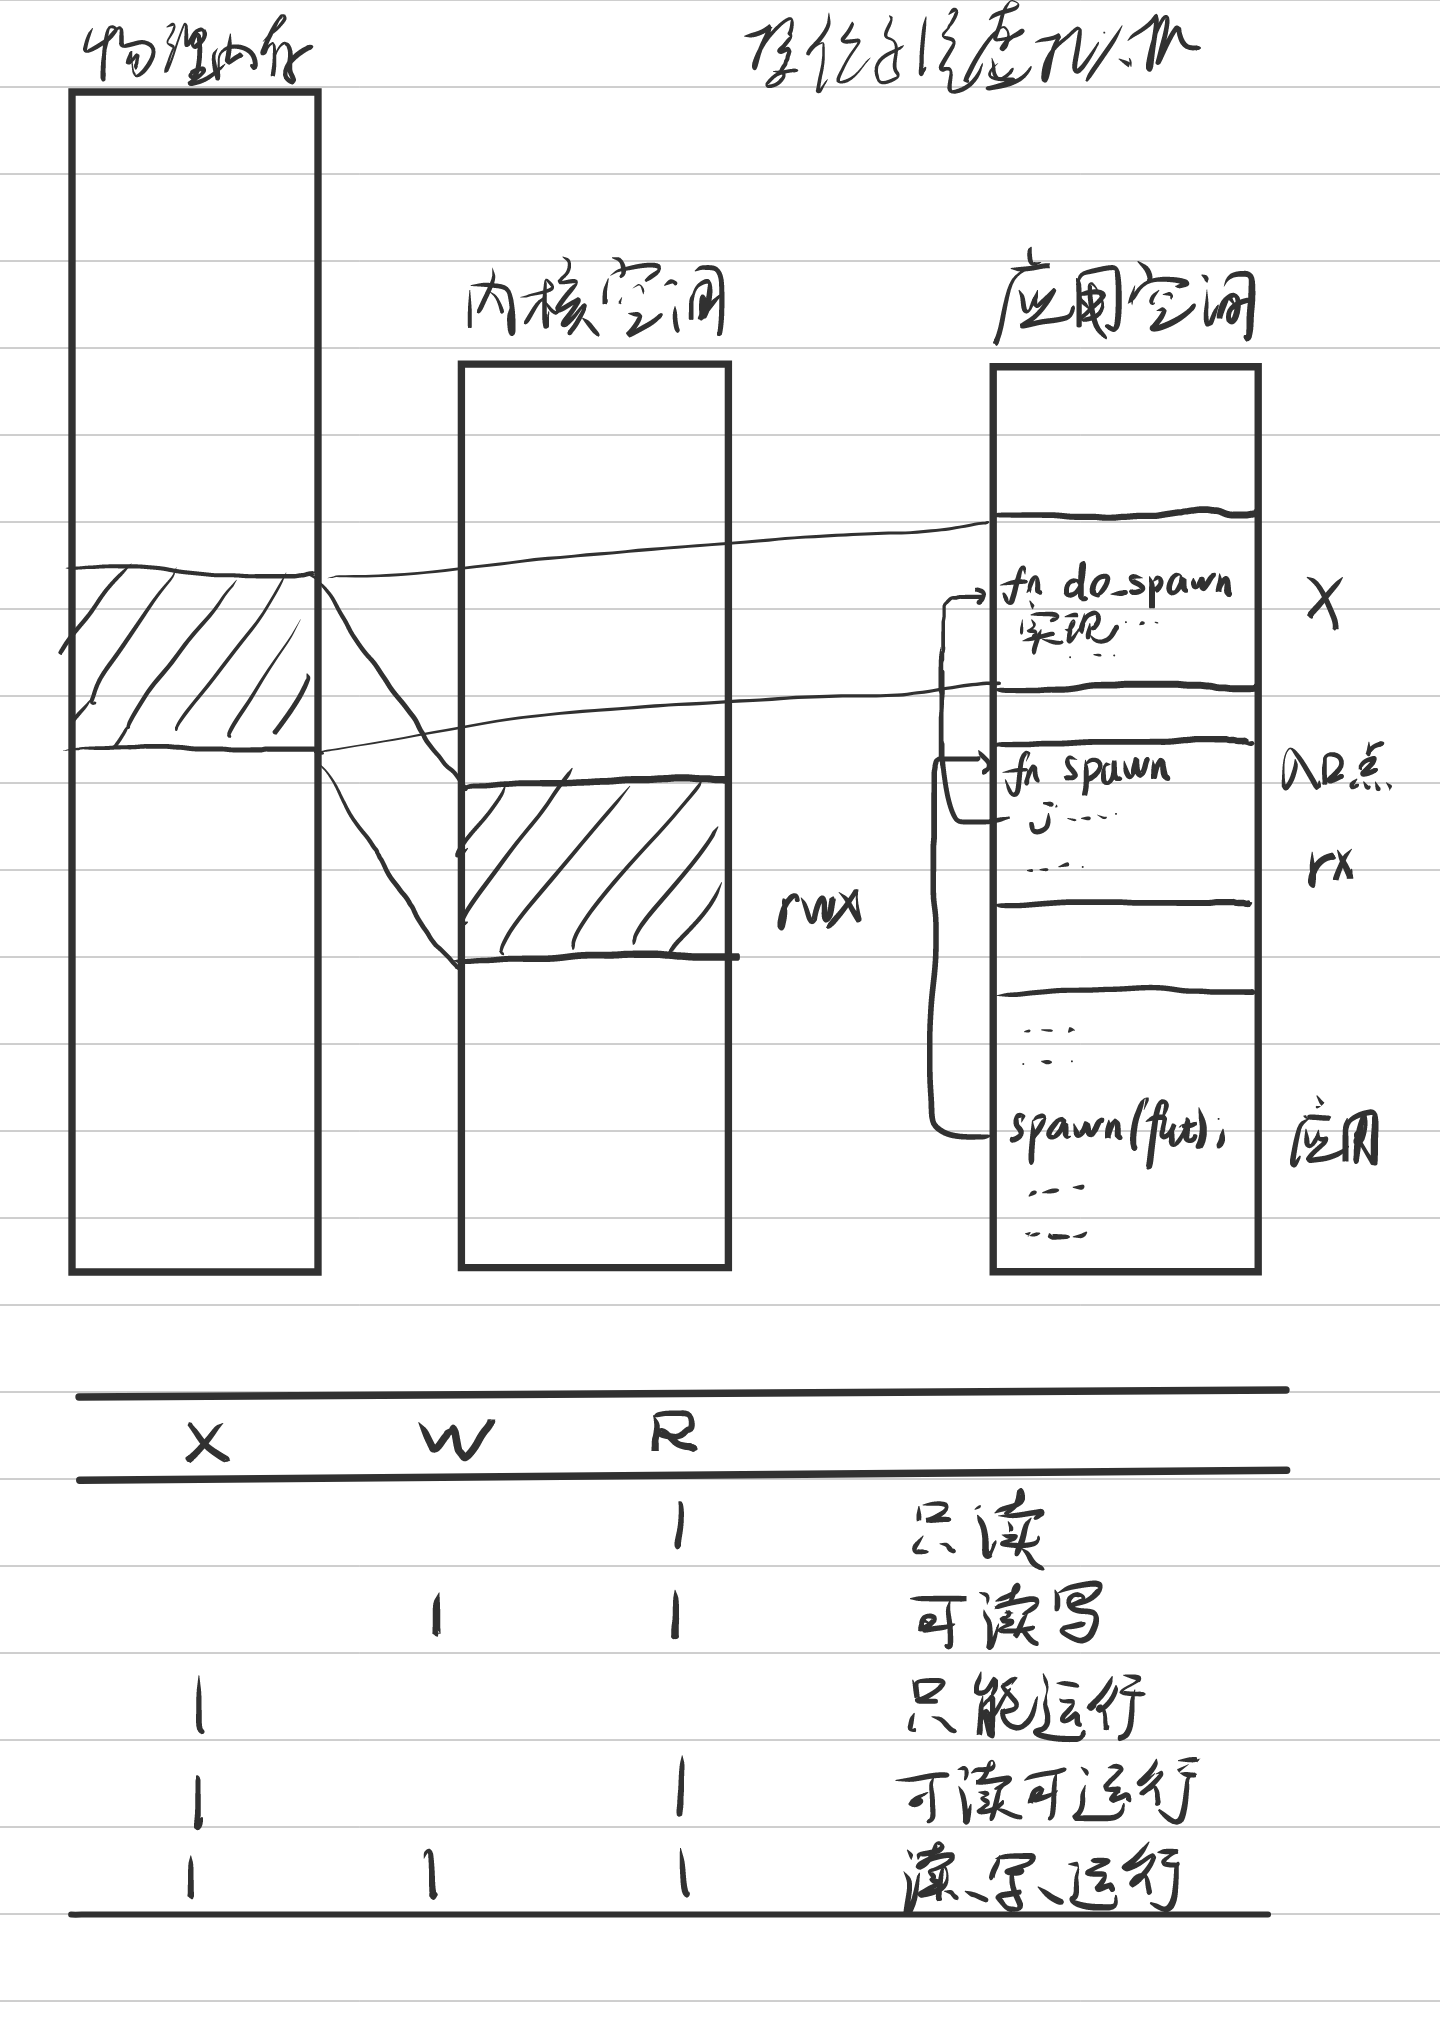 物理内存
内核空间
应用空间
fn do_spawn
实现……
X
fn spawn
入口点
j……
rx
rwx
spawn(fut);
应用
X W R
1 只读
1 1 可读写
1 只能运行
1 1 可读可运行
1 1 1 读、写、运行